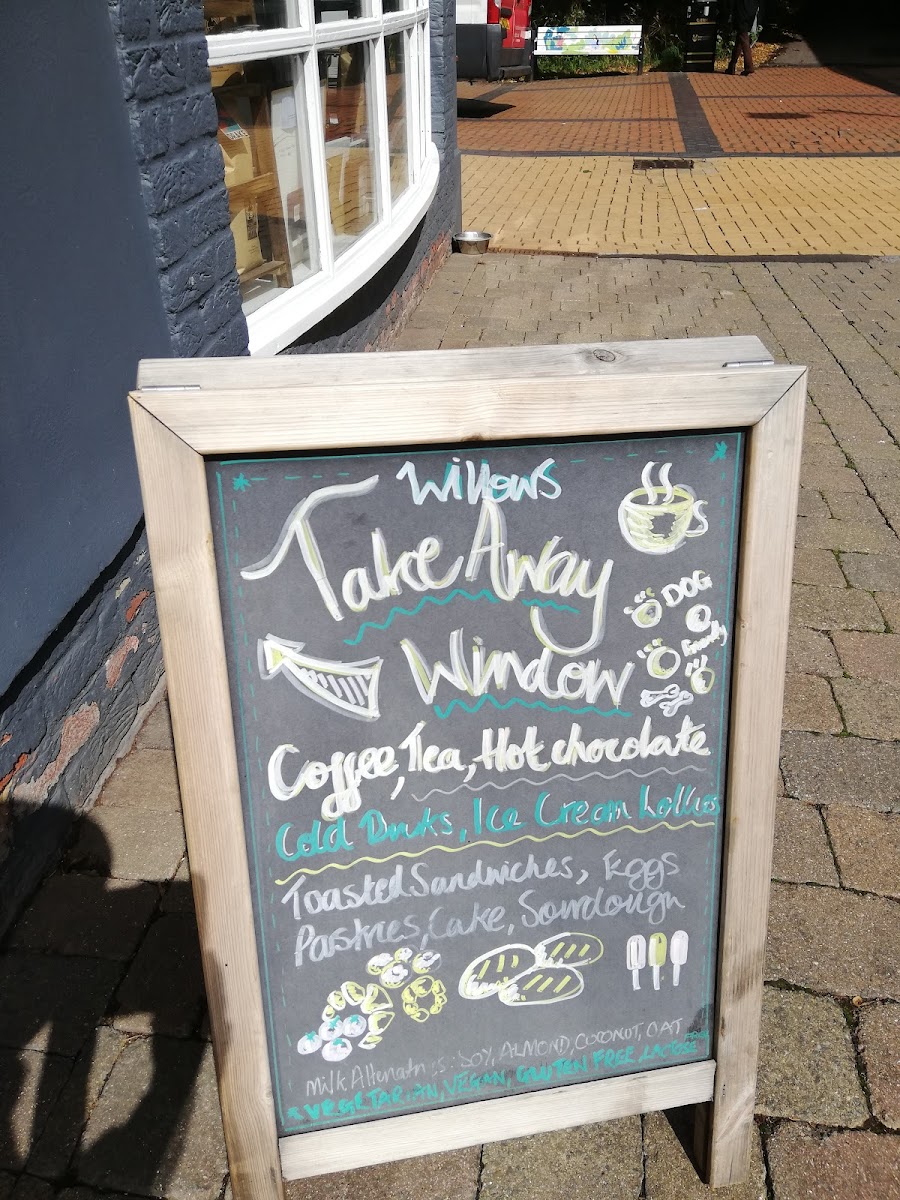 Willows
Take Away
DOG
Friendly
Window
Coffee, Tea, Hot chocolate
Cold Drinks, Ice Cream Lollies
Toasted Sandwiches, Eggs
Pastries, Cake, Sourdough
Milk Alternatives: SOY, ALMOND, COCONUT, OAT
VEGETARIAN, VEGAN, GLUTEN FREE, LACTOSE FREE